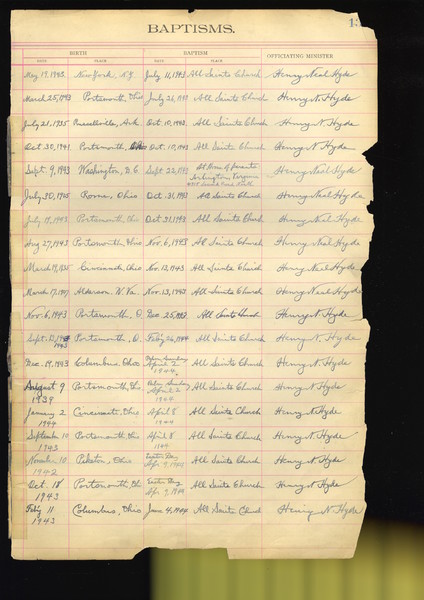 BAPTISMS.
BIRTH BAPTISM OFFICIATING MINISTER
DATE PLACE DATE PLACE
May 19, 1943. New York, N.Y. July 11, 1943 All Saints Church Henry Neal Hyde
March 25, 1943 Portsmouth, Ohio July 25, 1943 All Saints Church Henry N. Hyde
July 21, 1935 Russellville, Ark Oct. 10, 1943. All Saints Church Henry N. Hyde
Oct 30, 1941. Portsmouth, Ohio Oct. 10, 1943 All Saints Church Henry N. Hyde
Sept. 9, 1943 Washington, D.C Sept. 22, 1943 At Home of parents Henry Neal Hyde
Arlington Virginia
July 30, 1905 Rome, Ohio Oct. 31, 1943 All Saints Church Henry Neal Hyde
July 19, 1943 Portsmouth, Ohio Oct. 31, 1943 All Saints Church Henry Neal Hyde
Aug 27, 1943 Portsmouth, Ohio Nov. 6, 1943 All Saints Church Henry Neal Hyde
March 19, 1935 Cincinnati, Ohio Nov. 13, 1943 All Saints Church Henry Neal Hyde
March 17, 1907 Alderson, W. Va. Nov. 13, 1943 All Saints Church Henry Neal Hyde
Nov. 6, 1943 Portsmouth, O. Dec 25, 1943 All Saints Church Henry N. Hyde
Sept. 1943 Portsmouth, O. Feb'y 26, 1944 All Saints Church Henry N. Hyde
Dec. 19, 1943 Columbus, Ohio Palm Sunday April 2 1944 All Saints Church Henry N. Hyde
August 9 1939 Portsmouth, Ohio Palm Sunday April 2 1944 All Saints Church Henry N. Hyde
January 2 1944 Cincinnati, Ohio April 8 1944 All Saints Church Henry N. Hyde
September 10 1943 Portsmouth, Ohio April 8 1944 All Saints Church Henry N. Hyde
November 10 1942 Piketon, Ohio Easter Day Apr. 9, 1944 All Saints Church Henry N. Hyde
Oct. 18 1943 Portsmouth, Ohio Easter Day Apr. 9, 1944 All Saints Church Henry N Hyde
Feb'y 11 1943 Columbus, Ohio June 4, 1944 All Saints Church Henry N Hyde